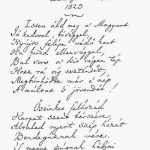 1823
Isten áld meg a Magyart
Jó kedvvel, bőséggel,
Nyújts feléje védő kart
Ha küzd ellenséggel,
Bal sors a kit régen tép
Hozz rá víg esztendőt
Megbűnhődte már e nép
A' multat s jövendőt!
Őseinket felhozád
Kárpát szent bérczére,
Általad nyert szép hazát
Bendegúznak vére,